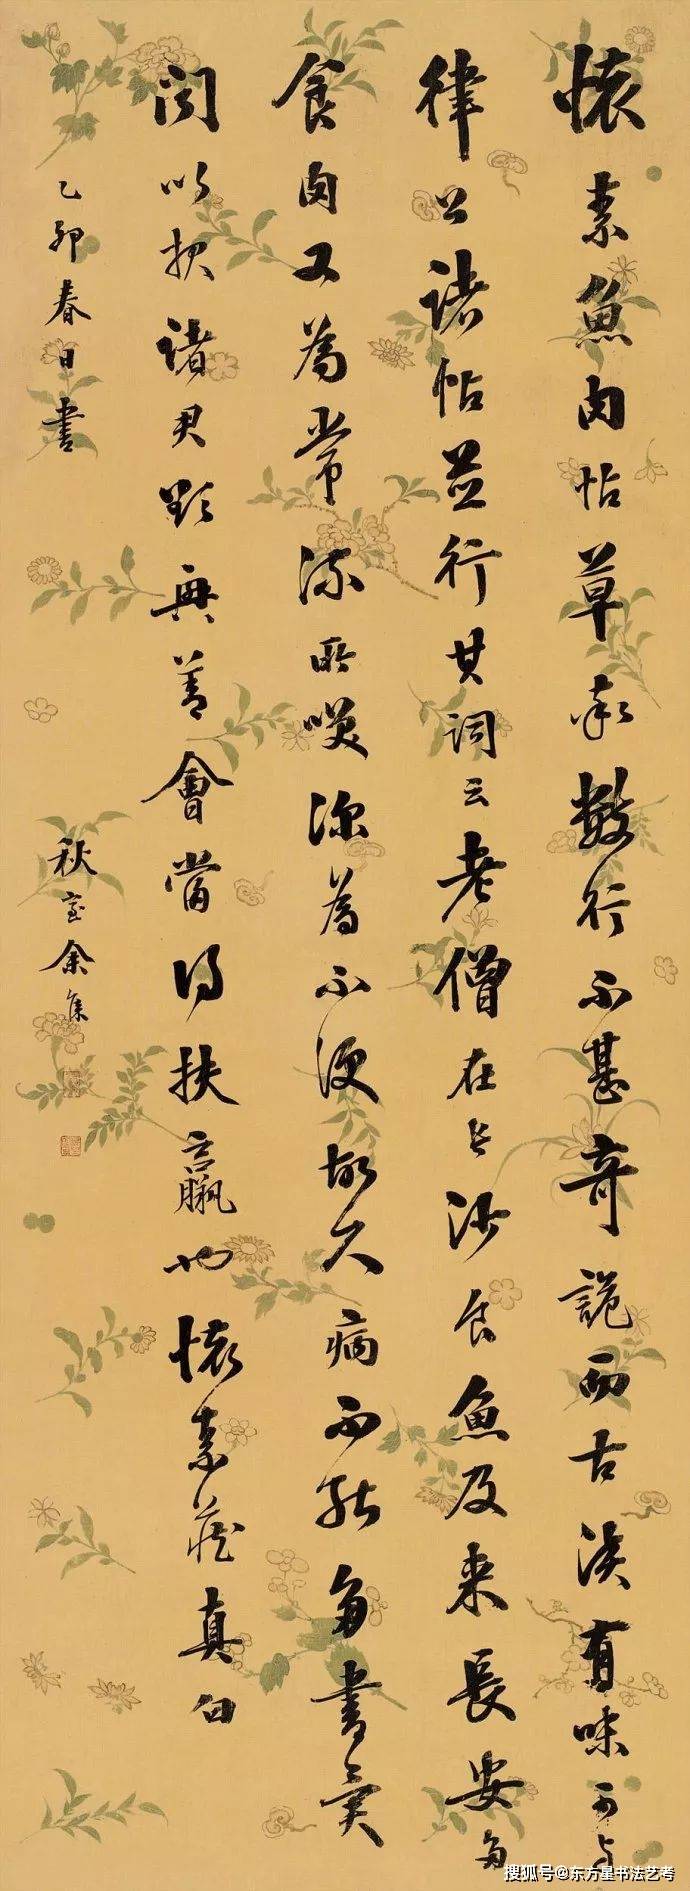 懷素魚肉帖草素數行不甚奇詭而古淡有味可与
律公諸帖並行其詞云老僧在長沙食魚及来長安多
食肉又為常流所唉深為不便故久病不能多書實
閒以报諸君欲興善會當得扶羸也懷素藏真白
乙卯春日書
秋室余集
搜狐号@东方星书法艺考